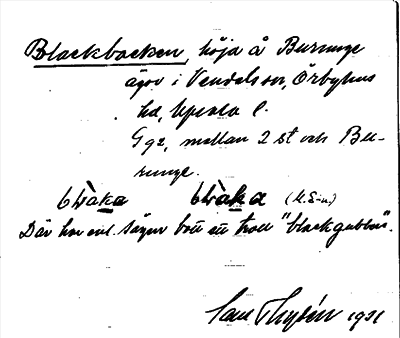 Blackbacken, höjd å Burunge
ägor i Vendels sn, Örbyhus
hd, Upsala l.
Gge, mellan 2 st och Bu-
runge.
(M. E-m.)
Där har enl. sägen bott ett troll "blackgubben".
1931